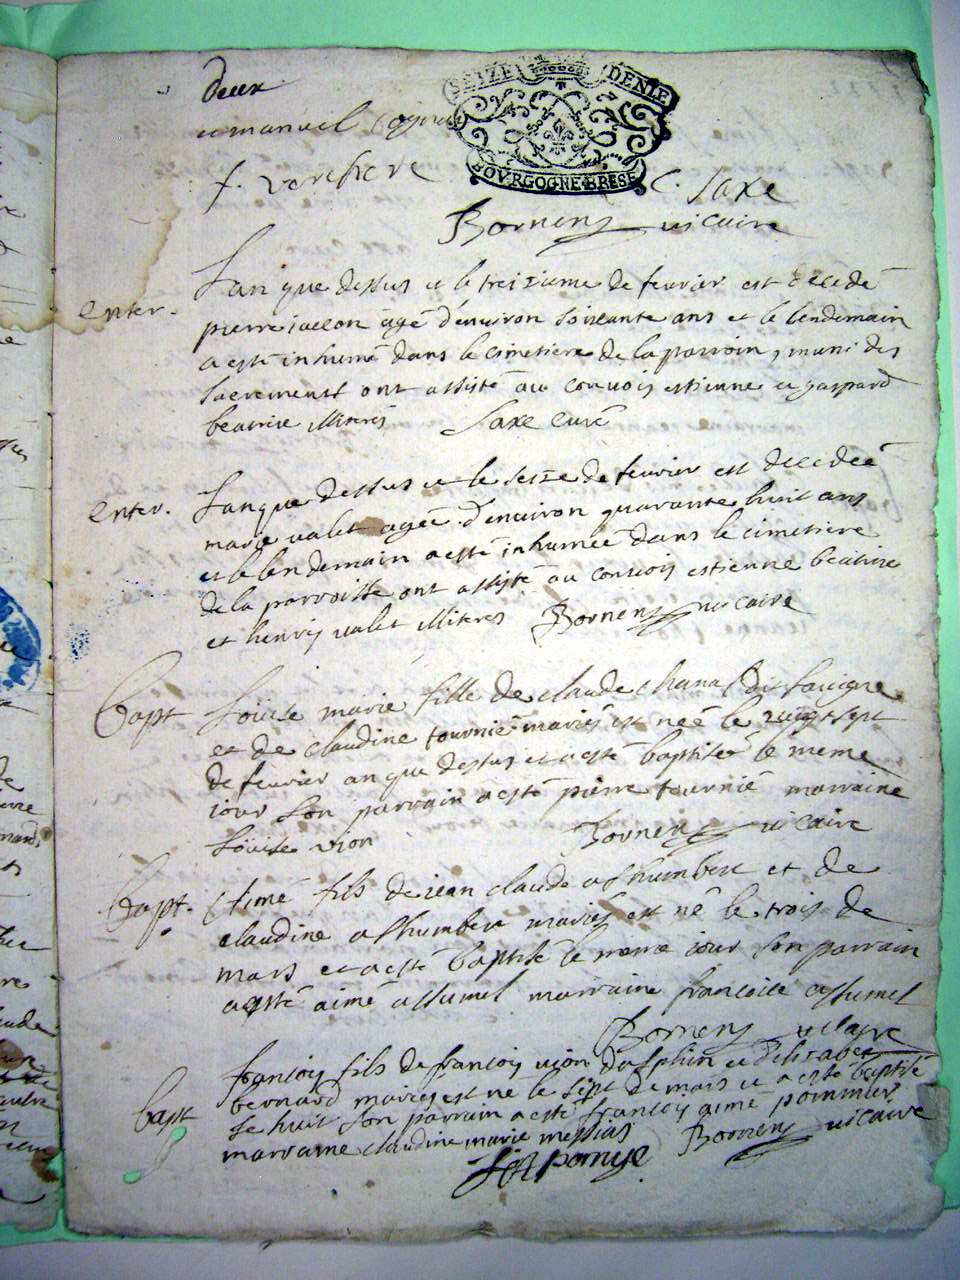 deux
SEIZE DENIE
emanuel
BOURGOGNE BRESE
f. verchere C. Saxe
Bornens vicaire
enter. Lan que dessus et le treizieme de fevrier est decedé
pierre iaccon agé denviron soixante ans et le lendemain
a esté inhumé dans le cimetiere de la parroiss, muni des
sacrements ont assisté au convois estienne et gaspard
beatrix illitrés Saxe curé
enter. Lan que dessus et le seize de fevrier est decedeé
marie valet ageé denviron quarante huit ans
et le lendemain a esté inhumeé dans le cimetiere
de la parroisse ont assisté au convois estienne beatrix
et henry valet illitres Bornens vicaire
bapt Loüise marie fille de claude chana dit savigne
et de claudine tournié mariés est neé le vingt sept
de fevrier an que dessus et a esté baptiseé le meme
iour son parrain a esté pierre tournié marraine
Loüise vion Bornens vicaire
bapt. Aimé fils de iean claude assumbert et de
claudine assumbert mariés est né le trois de
mars et a esté baptisé le meme iour son parrain
a esté aimé assumel marraine francoise assumel
Bornens vicaire
francois fils de francois vion dosphin et delisabet
bernard mariés est né le sept de mars et a esté baptisé
bapt le huit son parrain a esté francois aimé pommier
marraine claudine marie messias Bornens vicaire